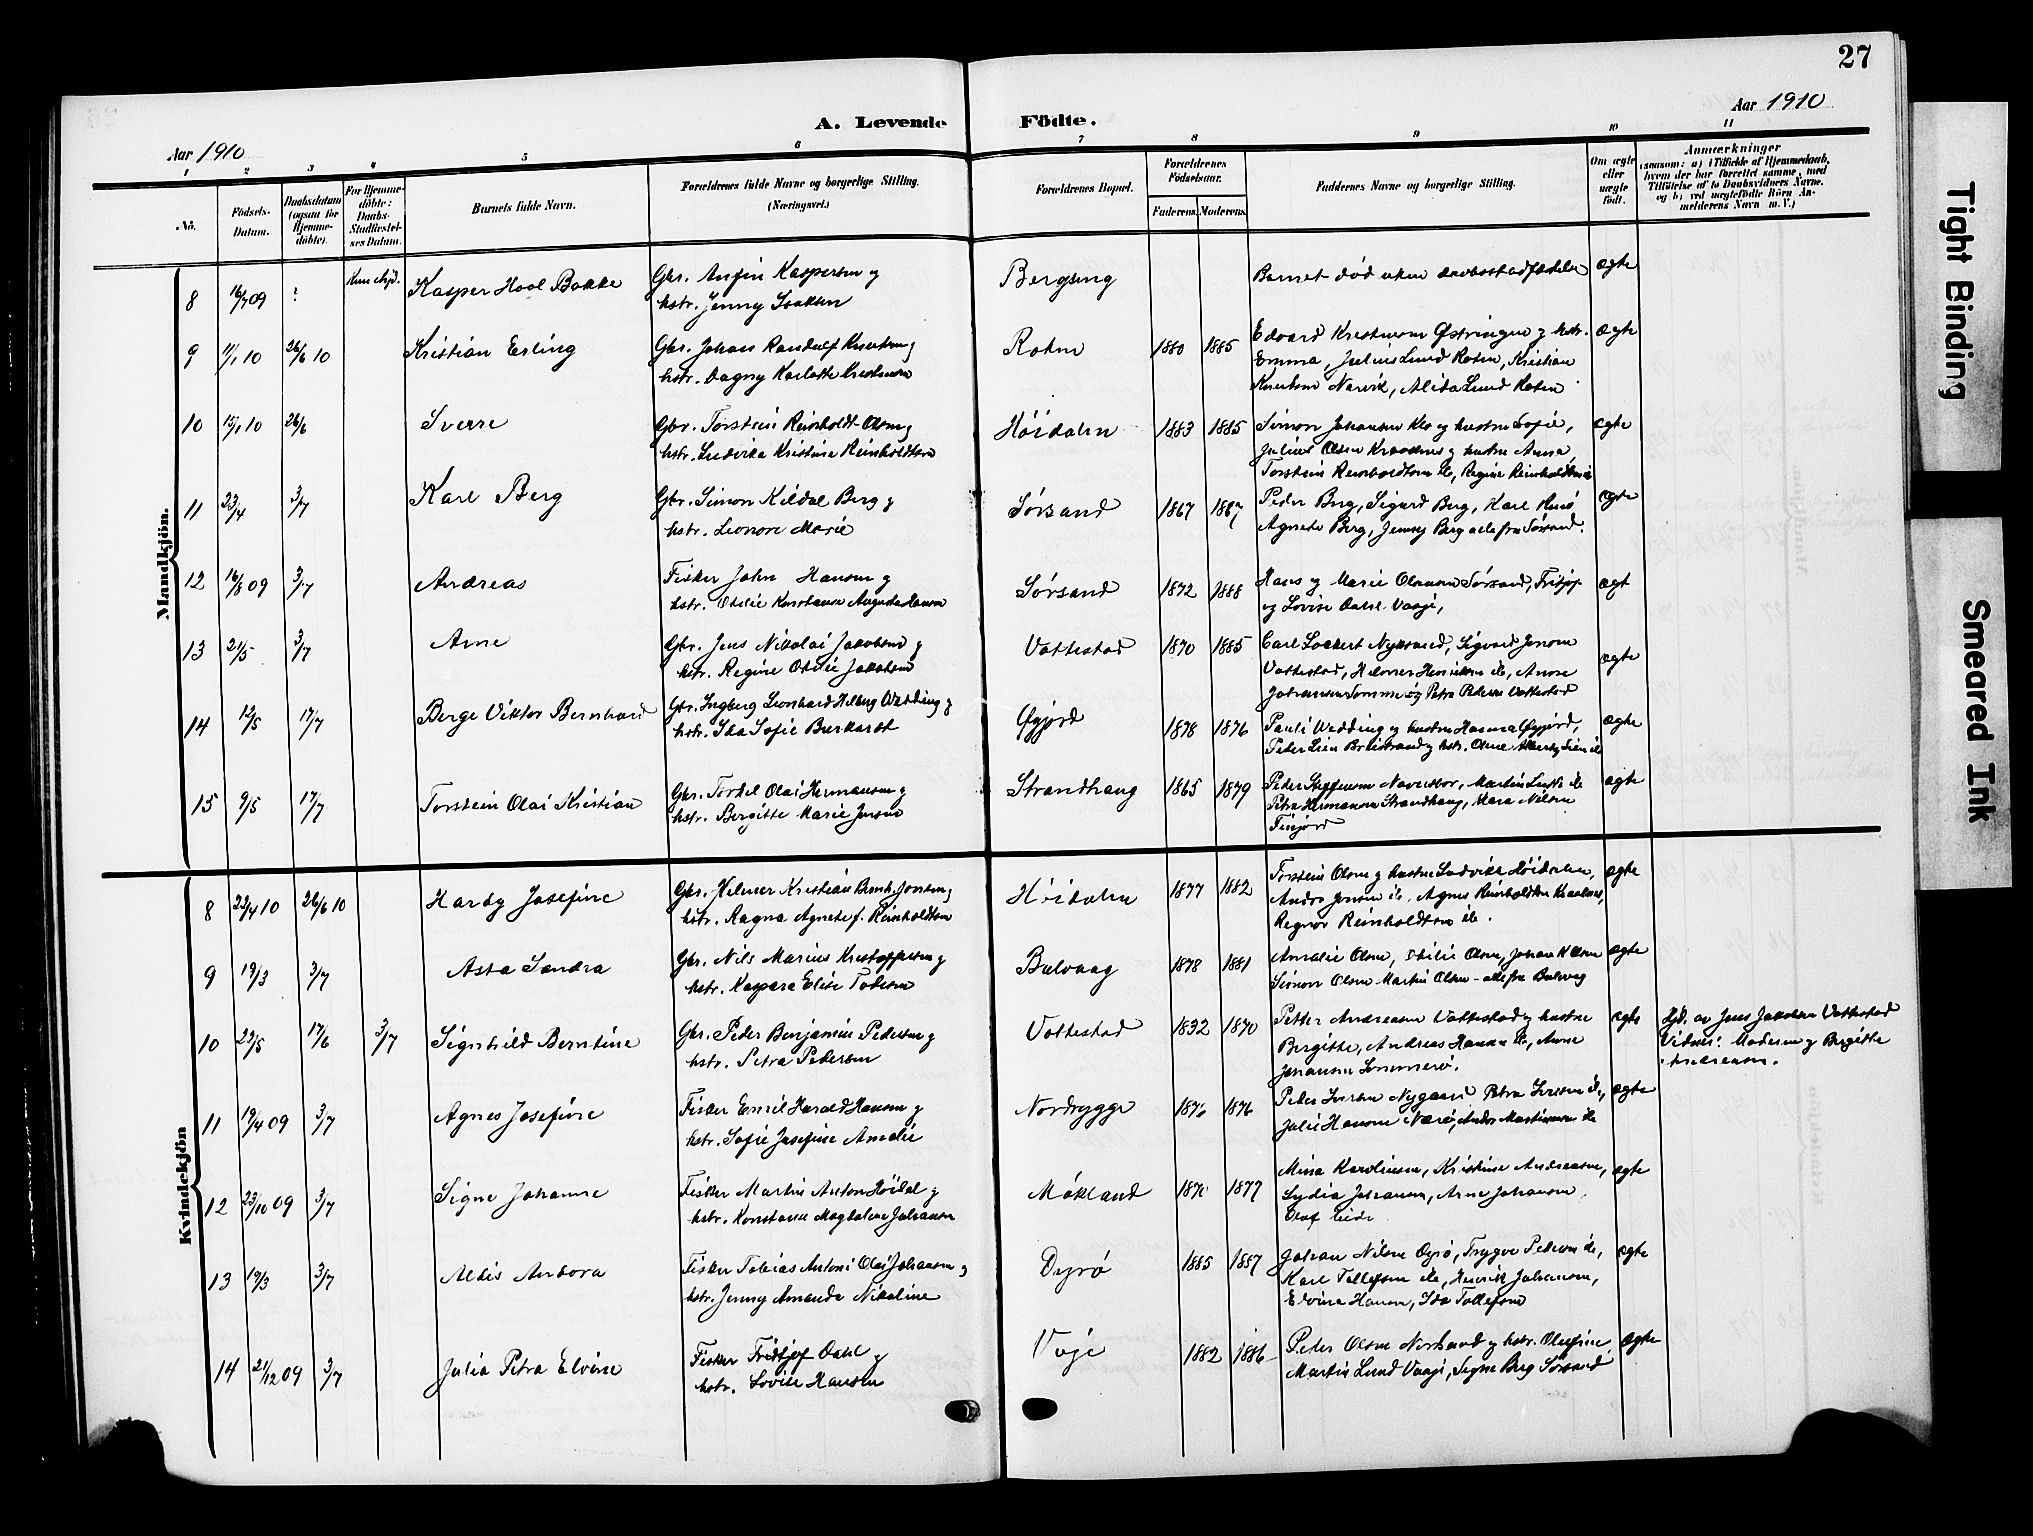 27
Aar 1910
Aar 1910
A. Levende Födte.
1 2 3 4 5 6 7 8 9 10 11
No.
Födsels-Datum.
Daabsdatum (ogsaa for Hjemme-döbte).
For Hjemme-döbte: Daabs-Stadfæstel-ses Datum.
Barnets fulde Navn.
Forældrenes fulde Navne og borgerlige Stilling.
(Næringsvei.)
Forældrenes Bopæl.
Forældrenes Födselsaar.
Faderens. Moderens.
Faddernes Navne og borgerlige Stilling.
Om ægte eller uægte födt.
Anmærkninger
(saasom: a) i Tilfælde af Hjemmedaab, hvem der har forrettet samme, med Tilföielse af to Daabsvidners Navne, og b) ved uægtefödte Börn An-melderens Navn m. V.)
Mandkjön.
8 16/7 09 ? Kasper Hool Bakke
Gbr. Anfin Kaspersen og
hstr. Jenny Isaksen
Bergseng
Barnet død uten daabsstadfæstelse ægte
9 11/1 10 26/6 10 Kristian Erling
Gbr. Johan Randulf Knutsen og
hstr. Dagny Karlotte
Roten 1880 1885
Edvard Østringen og hstr.
Emma, Julius Lund Roten, Kristian
Knutsen Narvik, Alida Lund Roten
ægte
10 15/1 10 26/6 Sverre
Gbr. Torstein Reinholdt-Olsen og
hstr. Ludvika Kristine Reinholdtsen
Höidalen 1883 1885
Simon Johansen Klo og hustru Sofie,
Julius Olsen og hustru Anna,
Torstein Reinholdtsen ib, Regine Reinholdtsen ib
ægte
11 23/4 3/7 Karl Berg
Gbr. Simon Kildal Berg og
hstr. Leonore Marie
Sørsand 1867
Peder Berg, Sigurd Berg, Karl
Agnete Berg, Jenny Berg alle fra Sørsand.
ægte
12 16/8 09 3/7 Andreas
Fisker John Hansen og
hstr. Otelie Konstanse Augusta Hansen
Sørsand 1872 1888
Hans og Marie Olausen Sørsand, Fritjof
og Lovise Dahl-Vaage,
ægt
13 21/5 3/7 Arne
Gbr. Jens Nikolai Jakobsen og
hstr. Regine Otelie Jakobsen
Vottestad 1870 1885
Carl Lockert Nyksund, Sigvard Jensen
Vottestad, Helmer Henriksen ib, Anne
Johansen Sommerø og Petra Pedersen Vottestad
ægte
14 12/5 17/7 Berge Viktor Bernhard
Gbr. Ingberg Leonhard Hilberg Wedding og
hstr. Ida Sofie Burkardt
Øgjord 1878 1876
Pauli Wedding og hustru Hanna Øgjord,
Peder Lien Breistrand og hstr. Oline Lien ib
ægte
15 9/5 17/7 Torstein Olai Kristian
Gbr. Torkel Olai Hermansen og
hstr. Bergitte Marie Jensen
Strandhaug 1865 1879
Peder Steffensen Navustbor, Martin ib
Petra Hermansen Strandhaug, Mara Nilsen
Finjord
ægte
Kvindekjön
8 22/4 10 26/6 10 Hardy Josefine
Gbr. Helmer Kristian Bernh. Jonsen og
hstr. Ragna Agnete f. Reinholdtsen
Höidalen 1877 1882
Torstein Olsen og hustru Ludvikke Höidalen,
Andor Jensen ib, Agnes Reinholdtsen
Regnor Reinholdtsen ib.
ægte
9 19/3 3/7 Asta Sandra
Gbr. Nils Marius Kristoffersen og
hstr. Kaspara Elise
Bulvaag 1878 1881
Amalie Olsen, Otelie Olsen, Johan K Olsen
Simon Olsen-Martin Olsen-alle fra Bulvaag
ægte
10 23/5 17/6 3/7 Signhild Berntine
Gbr. Peder Benjamin Pedersen og
hstr. Petra Pedersen
Vottestad 1832 1870
Petter Andreasen Vottestad og hustru
Bergitte, Andreas Hansen ib, Anne
Johansen Sommerø.
ægte
Hjd. av Jens Jakobsen Vottestad
Vidner: Moderen og Bergitte
Andreasen.
11 19/4 09 3/7 Agnes Josefine
Fisker Emil Harald Hansen og
hstr. Sofie Josefine Amalie
Nordrygge 1876 1876
Peder Iversen Nygaard Petra Iversen ib,
Julie Hansen Nærø, Andor Martinsen ib
ægte
12 23/10 09 3/7 Signe Johanne
Fisker Martin Anton Höidal og
hstr. Konstanse Magdalene Johansen
Møkland 1877
Mina Karolinsen, Kristine Andreasen,
Lydia Johansen, Arne Johansen,
Olaf
ægte
13 19/3 3/7 Aldis Andora
Fisker Tobias Antoni Olai Johansen og
hstr. Jenny Amanda Nikoline
Dyrø 1885 1887
Johan Nilsen Dyrø, Trygve Pedersen ib,
Karl Tollefsen ib, Henrik Johansen,
Edvina Hansen, Ida Tollefsen
ægte
14 21/12 09 3/7 Julia Petra Elvine
Fisker Fridtjof Dahl og
hstr. Lovise Hansen
Vaje 1882 1886
Peder Olsen Norsand og hstr. Olufine
Martin Lund Vaage, Signe Berg Sørsand
ægte
Tight Binding
Smeared Ink